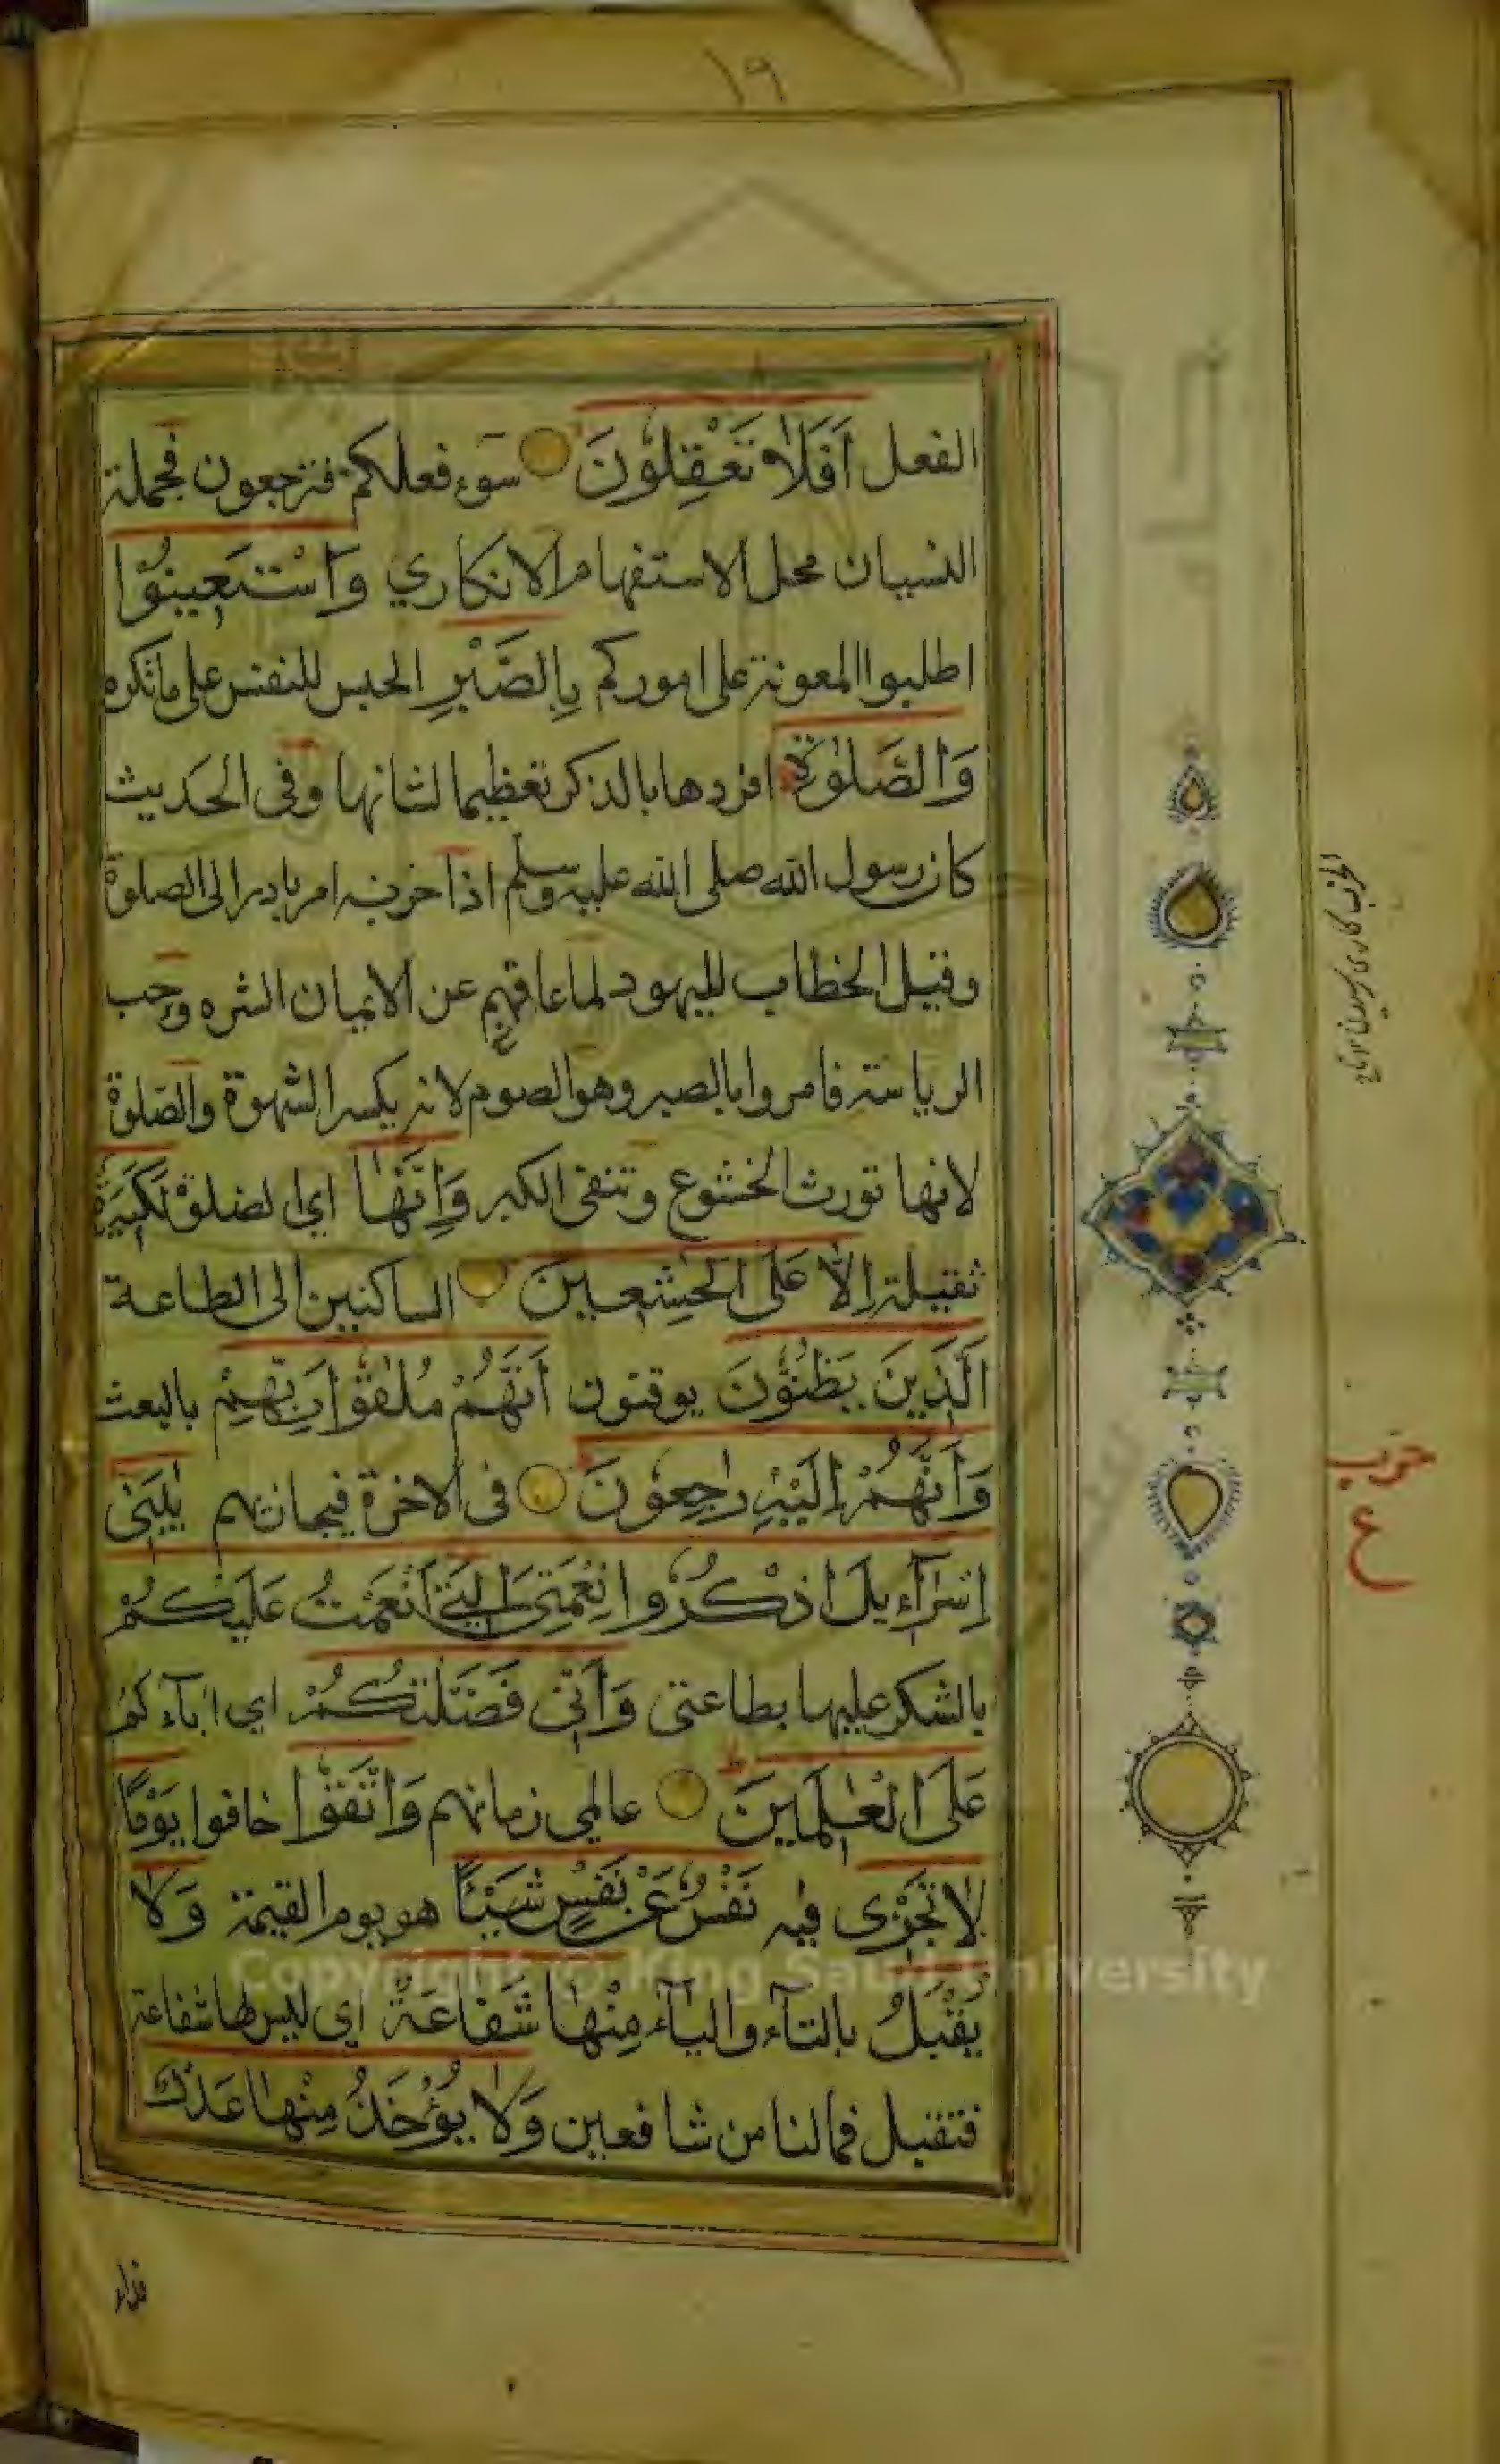 ١٩
الفعل اَفَلَا تَعْقِلُوْنَ سوء فعلكم فترجعون فجملة
النسيان محل الاستفهام الانكاري وَاسْتَعِينُوْا
اطلبوا المعونة على اموركم بِالصَّبْرِ الحبس للنفس على ما تكره
وَالصَّلٰوةِ افردها بالذكر تعظيما لشانها وفى الحديث
كان رسول الله صلى الله عليه وسلم اذا حزبه امر بادر الى الصلوة
وقيل الخطاب لليهود لما عاقهم عن الايمان الشره وحب
الرياسة فامروا بالصبر وهو الصوم لانه يكسر الشهوة والصلوة
لانها تورث الخشوع وتنفى الكبر وَاِنَّهَا اي الصلوة لَكَبِيْرَةٌ
ثقيلة اِلَّا عَلَى الْخٰشِعِيْنَ الساكنين الى الطاعة
اَلَّذِيْنَ يَظُنُّوْنَ يوقنون اَنَّهُمْ مُلٰقُوْا رَبِّهِمْ بالبعث
وَاَنَّهُمْ اِلَيْهِ رٰجِعُوْنَ فى الاخرة فيجازيهم يٰبَنِى
اِسْرَآءِيلَ اذْكُرُوا نِعْمَتِىَ الَّتِىْ اَنْعَمْتُ عَلَيْكُمْ
بالشكر عليها بطاعتى وَاَنِّى فَضَّلْتُكُمْ اى ابآءكم
عَلَى الْعٰلَمِيْنَ عالمي زمانهم وَاتَّقُوْا خافوا يَوْمًا
لَا تَجْزِى فيه نَفْسٌ عَنْ نَفْسٍ شَيْئًا هو يوم القيمة وَلَا
يُقْبَلُ بالتآء واليآء مِنْهَا شَفَاعَةٌ اى ليس لها شفاعة
فتقبل فما لنا من شافعين وَلَا يُؤْخَذُ مِنْهَا عَدْلٌ
حزب
ع
Copyright © King Saud University